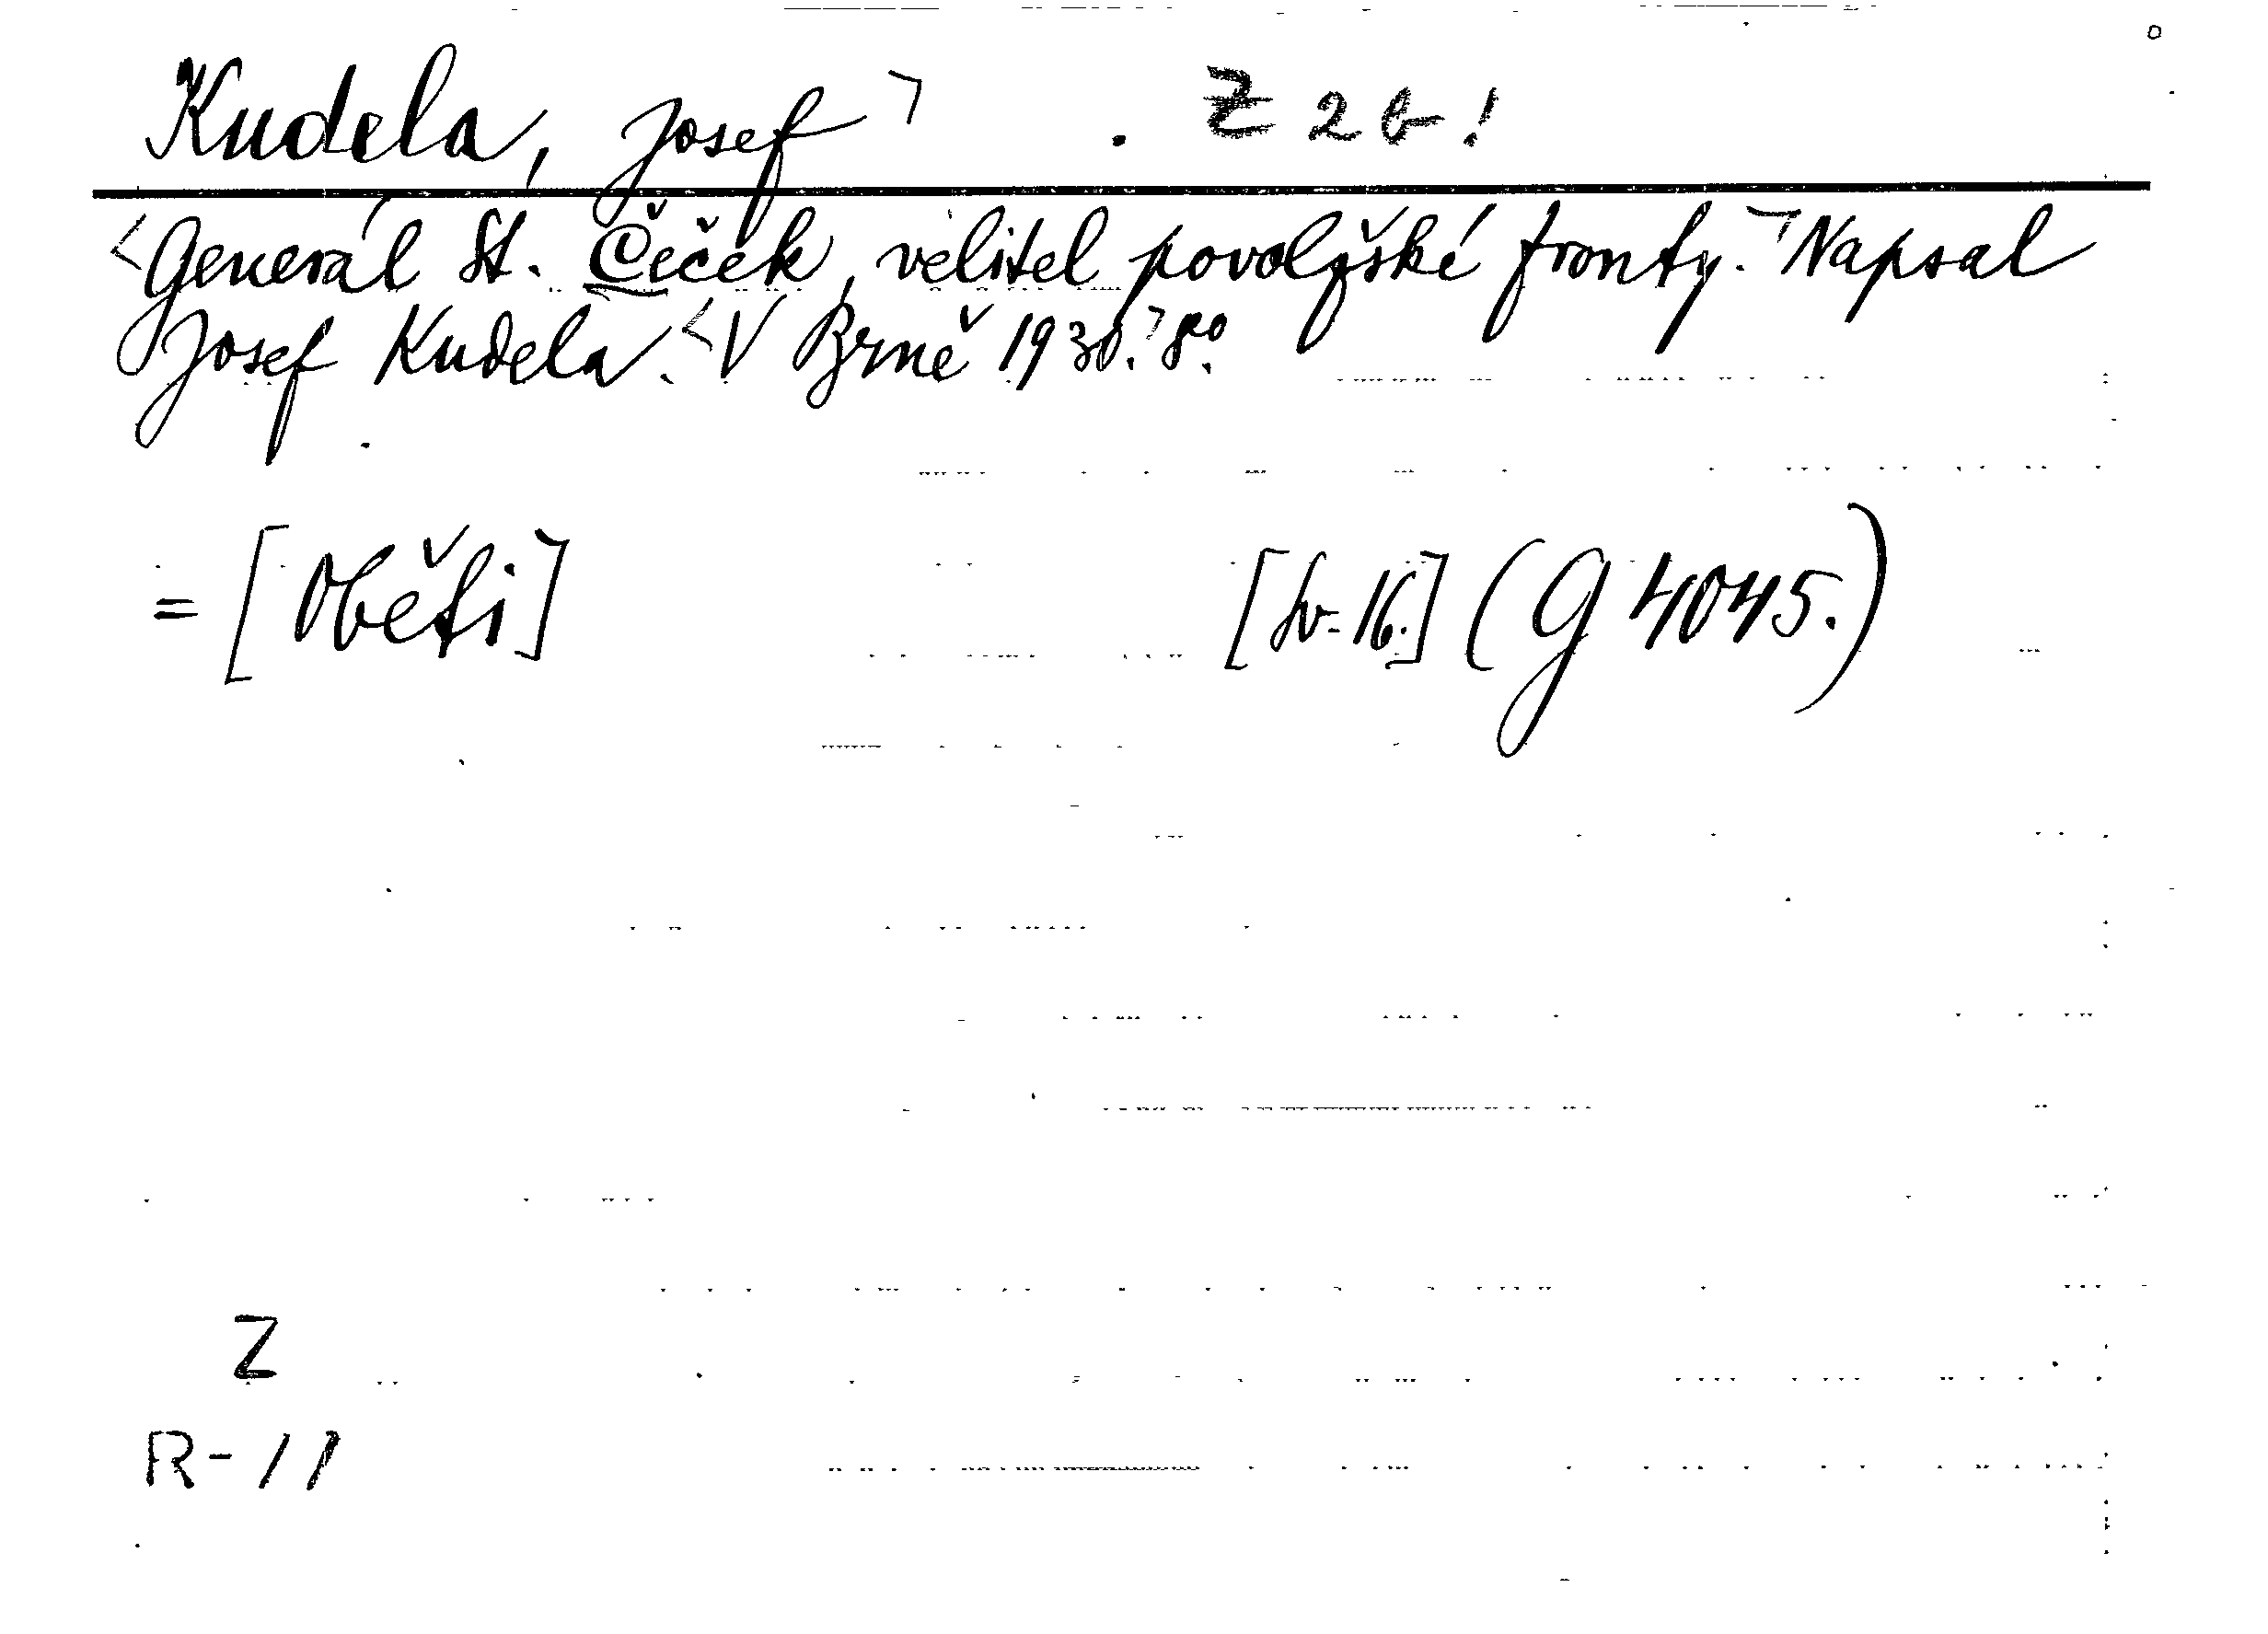 Kudela, Josef ⌝ Z 2 b!
<Generál St. Čeček, velitel povolžské fronty.⌝ Napsal
Josef Kudela. <V Brně 1930.⌝ 8º.
= [Oběti] [sv. 16.] (G 4045.)
Z
R-11